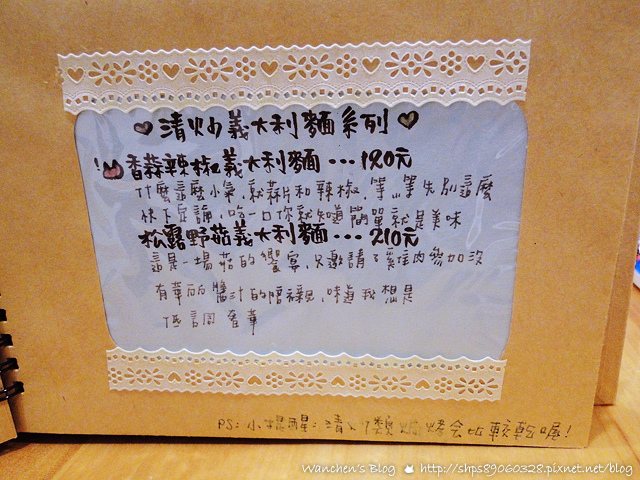 清炒義大利麵系列
香蒜辣椒義大利麵...180元
什麼這麼小氣,就蒜片和辣椒,等..等先別這麼
快下定論,吃一口你就知道簡單就是美味
松露野菇義大利麵...210元
這是一場菇的饗宴,只邀請了雞肉參加沒
有華麗醬汁的陪襯,味道我想是
低調奢華
PS:小提醒:清炒類焗烤會比較乾喔!
Wanchen's Blog http://shps89060328.pixnet.net/blog